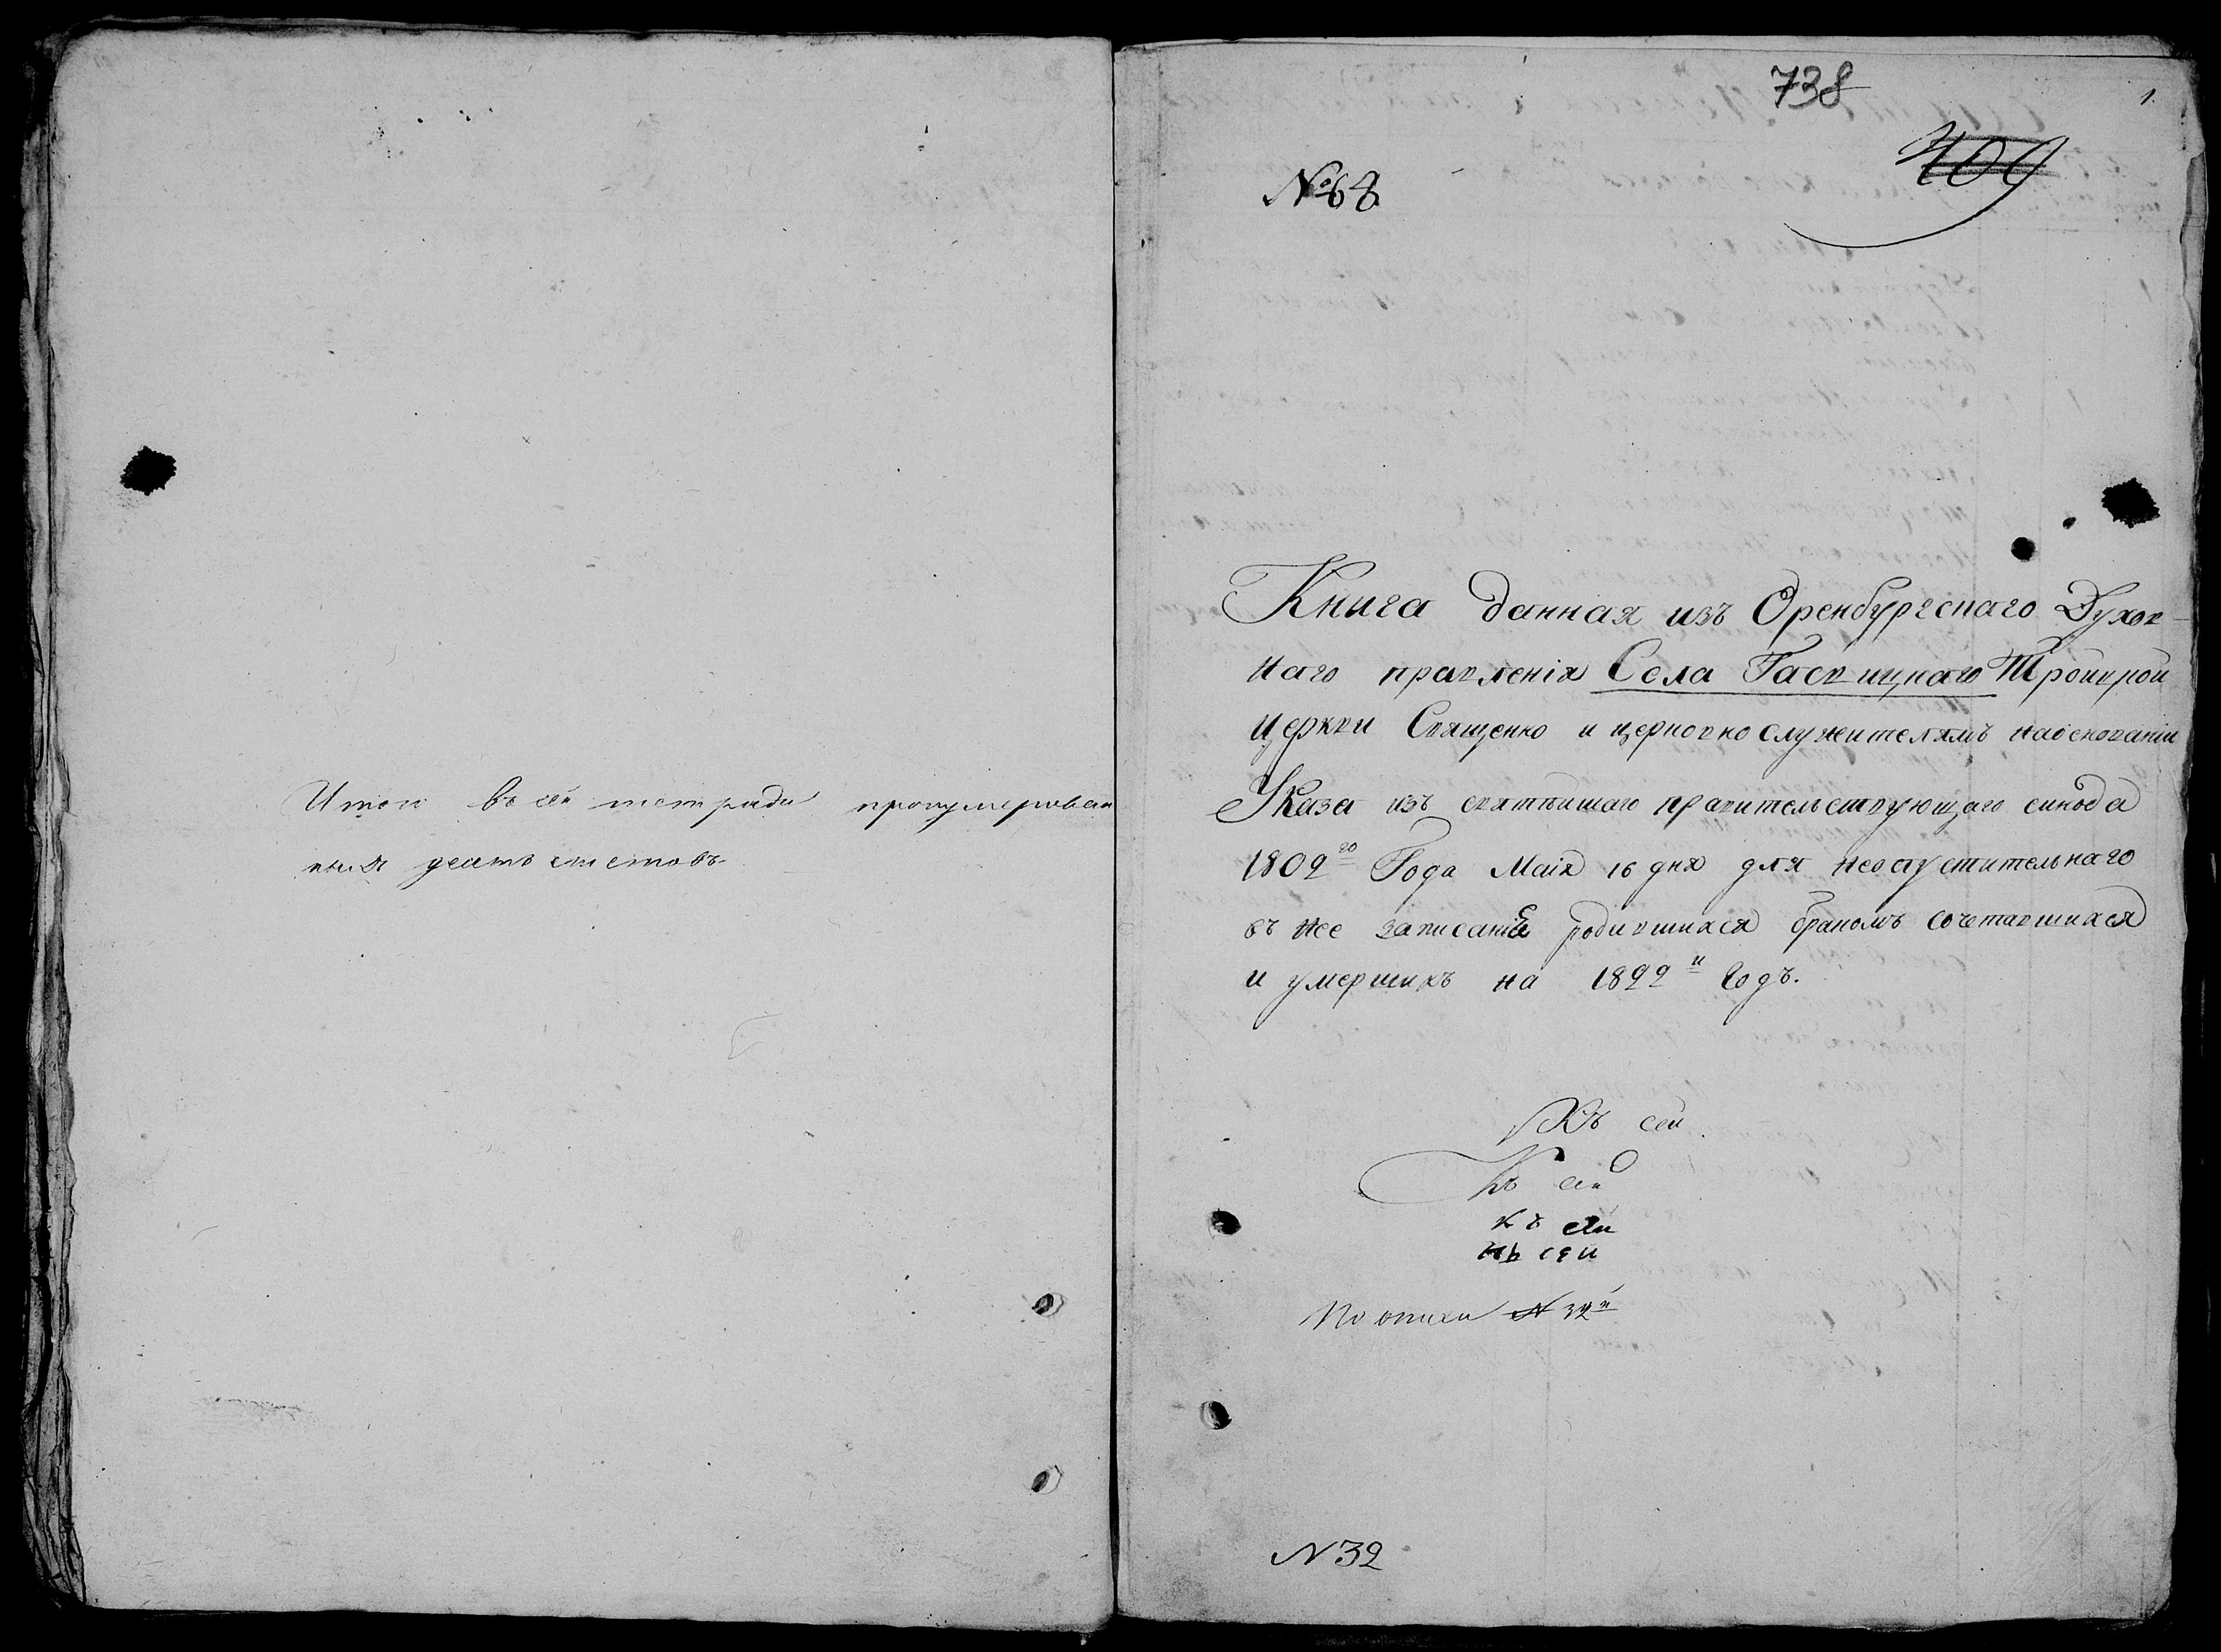 Итого въ сей тетради пронумерован
ныхъ десять листовъ
738
1.
409
№ 68
Книга данная изъ Оренбургскаго Духов-
наго правленія Села Ташкицкаго Троицкой
церкви Священно и церковно служителямъ на основаніи
Указа изъ святѣйшаго правительствующаго синода
1802го Года Маія 16 дня для неопустительнаго
въ нее записанія родившихся бракомъ сочетавшихся
и умершихъ на 1822й Годъ.
Къ сей
Къ сей
къ сей
къ сей
По описи № 32й
N 32